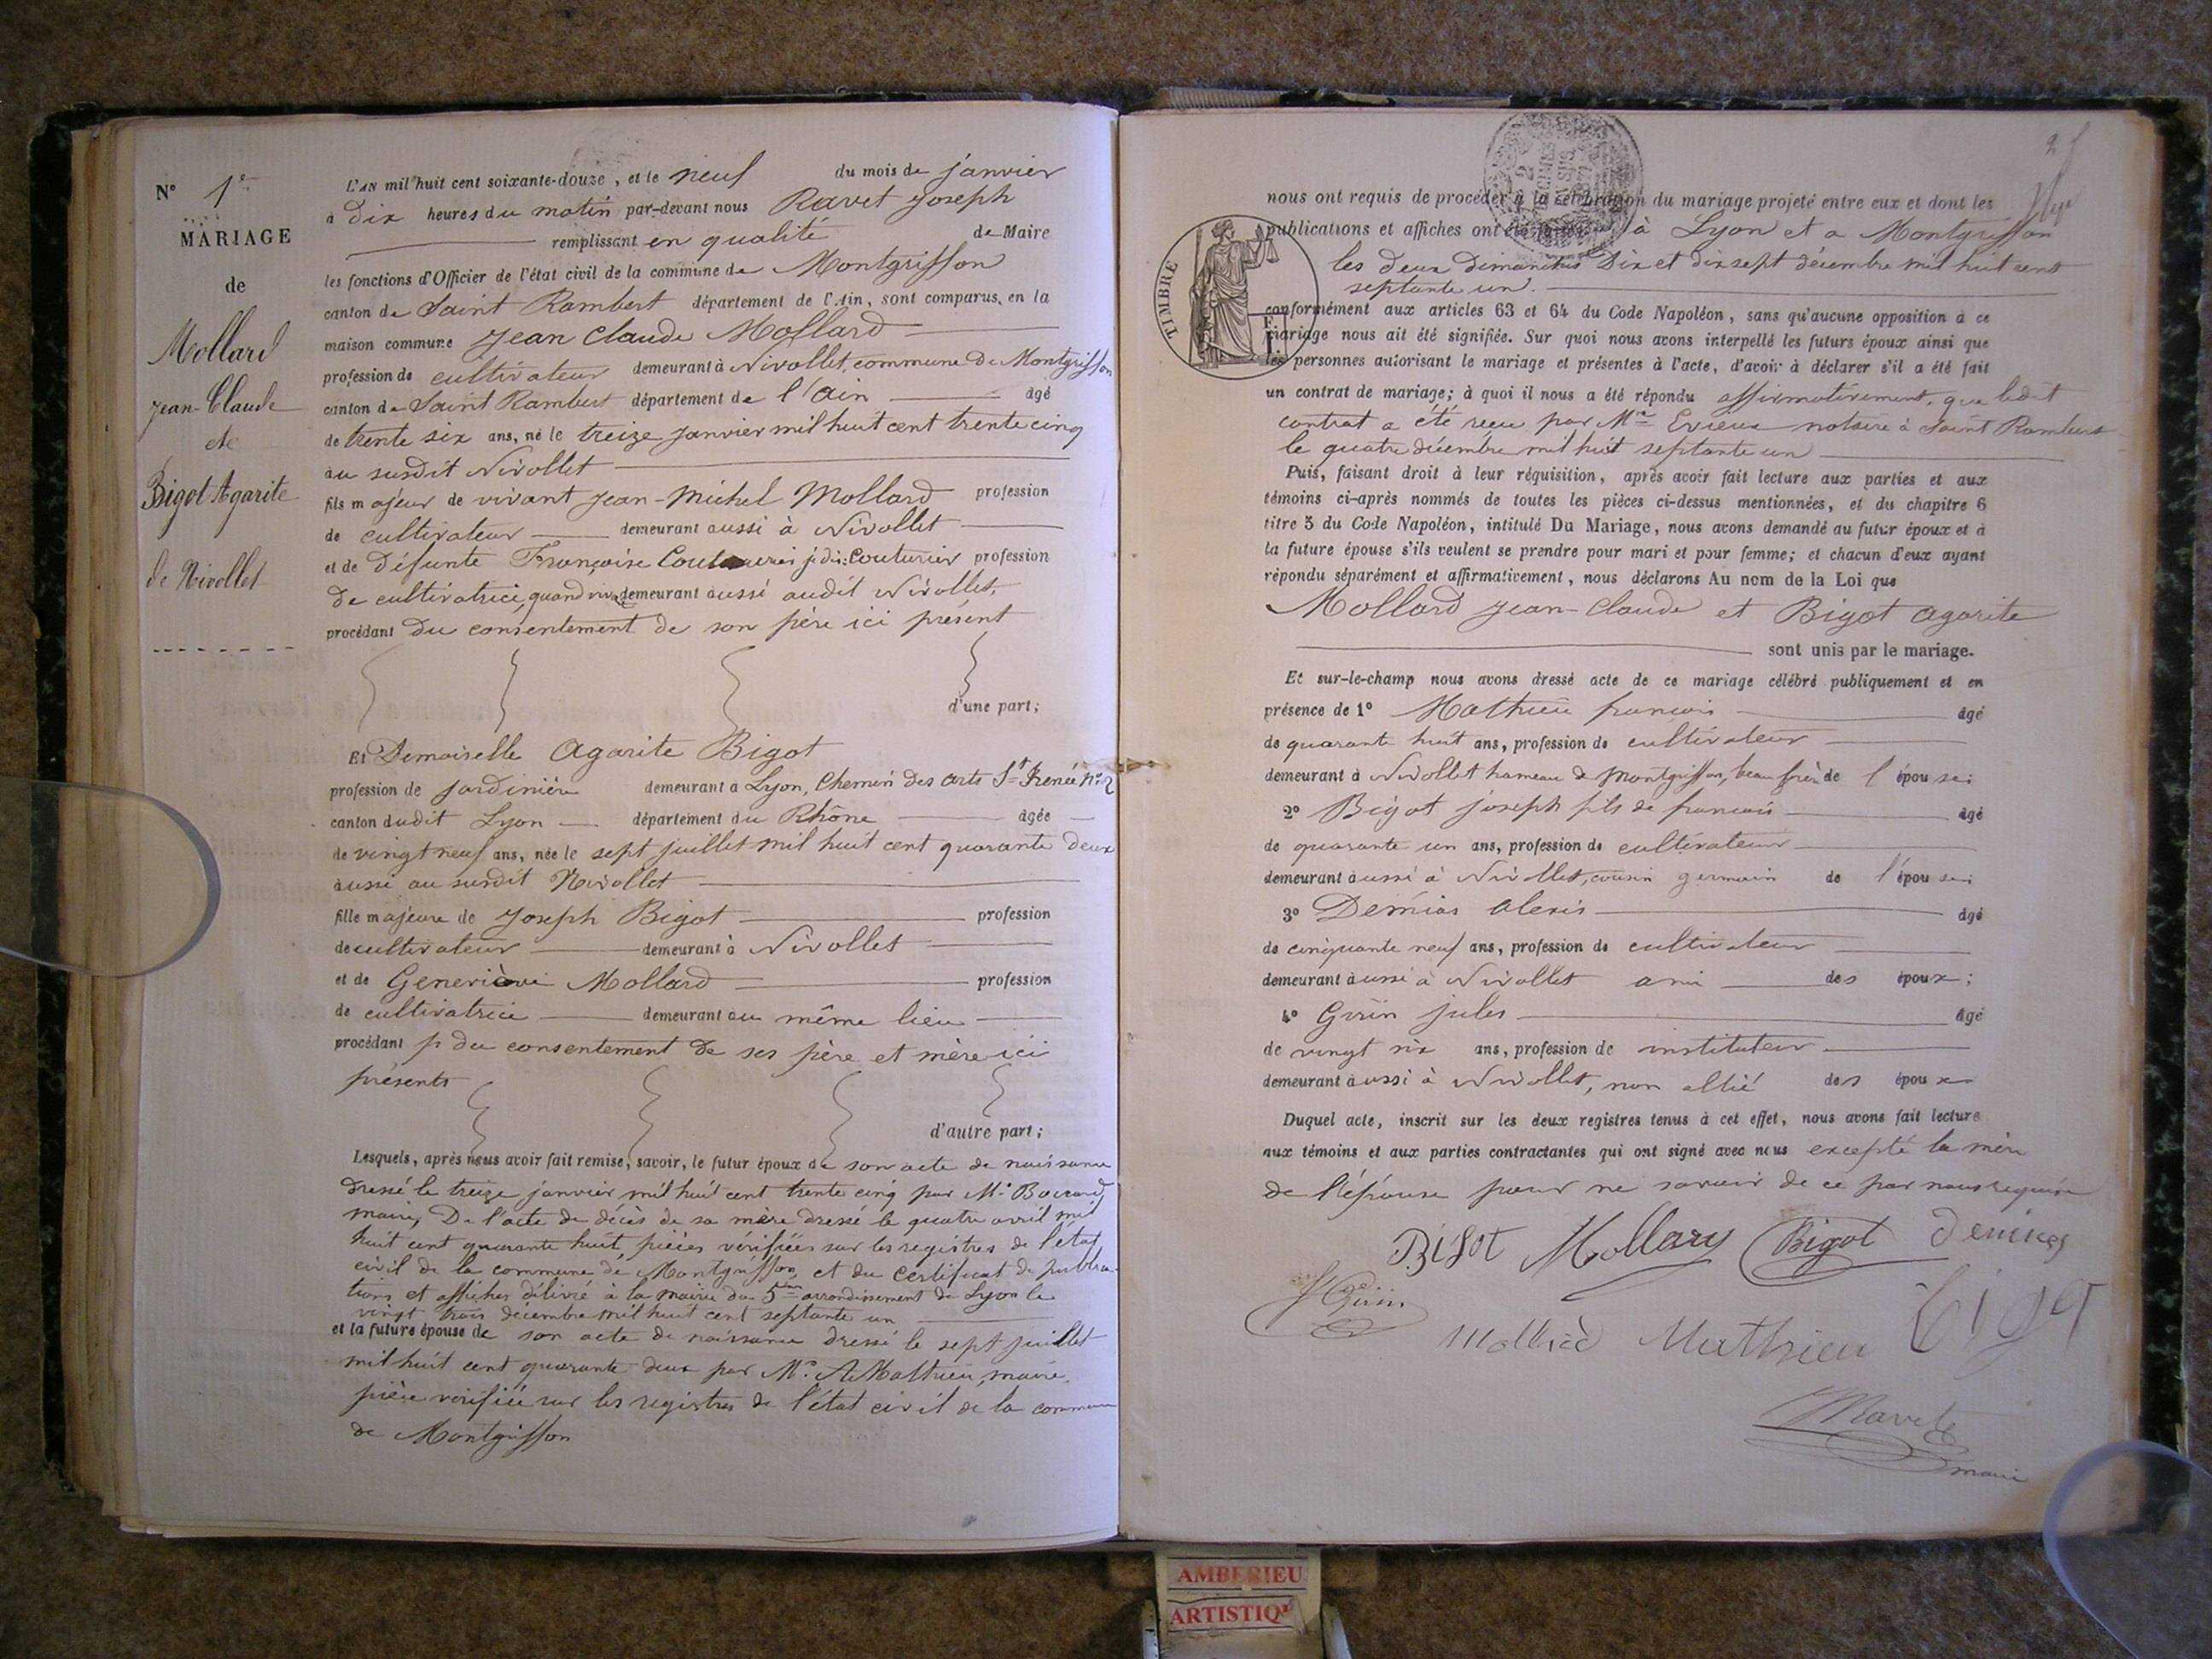 N° 1er
MARIAGE
de
Mollard
Jean-Claude
et de
Bigot Agarite
de Nivollet
L'AN mil huit cent soixante-douze, et le neuf du mois de janvier
à dix heures du matin par-devant nous Ravet Joseph
remplissant en qualité de Maire
les fonctions d'Officier de l'état civil de la commune de Montgriffon
canton de Saint Rambert département de l'Ain, sont comparus, en la
maison commune Jean Claude Mollard
profession de cultivateur demeurant à Nivollet, commune de Montgriffon
canton de Saint Rambert département de l'Ain âgé
de trente six ans, né le treize janvier mil huit cent trente cinq
au susdit Nivollet
fils majeur de vivant Jean-Michel Mollard profession
de cultivateur demeurant aussi à Nivollet
et de défunte Françoise Couturier profession
de cultivatrice, quand vivait demeurant aussi audit Nivollet,
procédant du consentement de son père ici présent
d'une part;
Et Demoiselle Agarite Bigot
profession de jardinière demeurant à Lyon, Chemin des arts St Irénée N° 2
canton dudit Lyon département du Rhône âgée
de vingt neuf ans, née le sept juillet mil huit cent quarante deux
aussi au susdit Nivollet
fille majeure de Joseph Bigot profession
de cultivateur demeurant à Nivollet
et de Geneviève Mollard profession
de cultivatrice demeurant au même lieu
procédant du consentement de ses père et mère ici
présents
d'autre part;
Lesquels, après nous avoir fait remise, savoir, le futur époux de son acte de naissance
dressé le treize janvier mil huit cent trente cinq par Mr
maire, De l'acte de décès de sa mère dressé le quatre avril mil
huit cent quarante huit, pièces vérifiées sur les registres de l'état
civil de la commune de Montgriffon et du certificat de publica-
tions et affiches délivré à la mairie du 5ème arrondissement de Lyon le
vingt trois décembre mil huit cent septante un
et la future épouse de son acte de naissance dressé le sept juillet
mil huit cent quarante deux par Mr. A Mathieu, maire,
pièce vérifiée sur les registres de l'état civil de la commune
de Montgriffon
2
nous ont requis de procéder à la célébration du mariage projeté entre eux et dont les
publications et affiches ont été à Lyon et a Montgriffon
les deux dimanches dix et dix sept décembre mil huit cent
septante un.
TIMBRE
conformément aux articles 63 et 64 du Code Napoléon, sans qu'aucune opposition à ce
mariage nous ait été signifiée. Sur quoi nous avons interpellé les futurs époux ainsi que
les personnes autorisant le mariage et présentes à l'acte, d'avoir à déclarer s'il a été fait
un contrat de mariage; à quoi il nous a été répondu affirmativement, que ledit
contrat a été reçu par Me notaire à Saint Rambert
le quatre décembre mil huit septante un
Puis, faisant droit à leur réquisition, après avoir fait lecture aux parties et aux
témoins ci-après nommés de toutes les pièces ci-dessus mentionnées, et du chapitre 6
titre 5 du Code Napoléon, intitulé Du Mariage, nous avons demandé au futur époux et à
la future épouse s'ils veulent se prendre pour mari et pour femme; et chacun d'eux ayant
répondu séparément et affirmativement, nous déclarons Au nom de la Loi que
Mollard Jean-Claude et Bigot Agarite
sont unis par le mariage.
Et sur-le-champ nous avons dressé acte de ce mariage célébré publiquement et en
présence de 1° Mathieu françois âgé
de quarante huit ans, profession de cultivateur
demeurant à Nivollet hameau de Montgriffon, beau frère de l'épouse;
2° Bigot joseph fils de françois âgé
de quarante un ans, profession de cultivateur
demeurant aussi à Nivollet, cousin germain de l'épouse;
3° Demias Alexis âgé
de cinquante neuf ans, profession de cultivateur
demeurant aussi à Nivollet ami des époux;
4° Guin jules âgé
de vingt six ans, profession de instituteur
demeurant aussi à Nivollet, non allié des époux
Duquel acte, inscrit sur les deux registres tenus à cet effet, nous avons fait lecture
aux témoins et aux parties contractantes qui ont signé avec nous excepté la mère
de l'épouse pour ne savoir de ce par nous requise
Bigot Mollard Bigot
Mathieu Bigot
Ravet
maire
AMBERIEU
ARTISTIQU